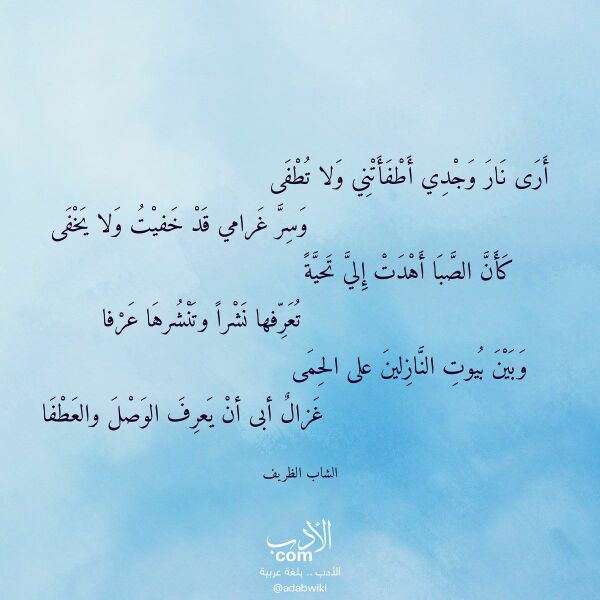 أَرَى نَارَ وَجْدِي أَطْفَأَتْنِي وَلا تُطْفَى
وَسِرَّ غَرامي قَدْ خَفيْتُ وَلا يَخْفَى
كَأَنَّ الصَّبَا أَهْدَتْ إِليَّ تَحيَّةً
تُعَرِّفها نَشْراً وتَنْشُرهَا عَرْفا
وَبَيْنَ بُيوتِ النَّازِلينَ على الحِمَى
غَزالٌ أبى أنْ يَعرِفَ الوَصْلَ والعَطْفَا
الشاب الظريف
الأدب
com
الأدب .. بلغة عربية
@adabwiki